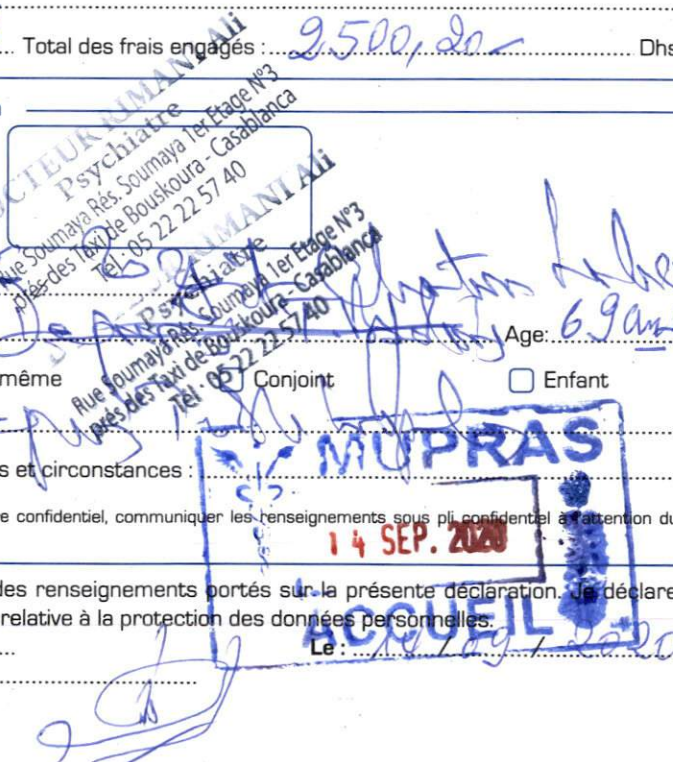 ... Total des frais engagés : 2500,20 Dhs
DOCTEUR RIMANI Ali
Psychiatre
Rue Soumaya Rés. Soumaya 1er Etage N°3
près des Taxi de Bouskoura - Casablanca
Tél : 05 22 22 57 40
RIMANI Ali
Psychiatre
Rue Soumaya Rés. Soumaya 1er Etage N°3
près des Taxi de Bouskoura - Casablanca
Tél : 05 22 22 57 40
Age: 69 ans
même Conjoint Enfant
s et circonstances :
MUPRAS
e confidentiel, communiquer les renseignements sous pli confidentiel à l'attention du
14 SEP. 2020
des renseignements portés sur la présente déclaration. Je déclare
relative à la protection des données personnelles.
ACCUEIL
Le : 14 / 09 / 2020